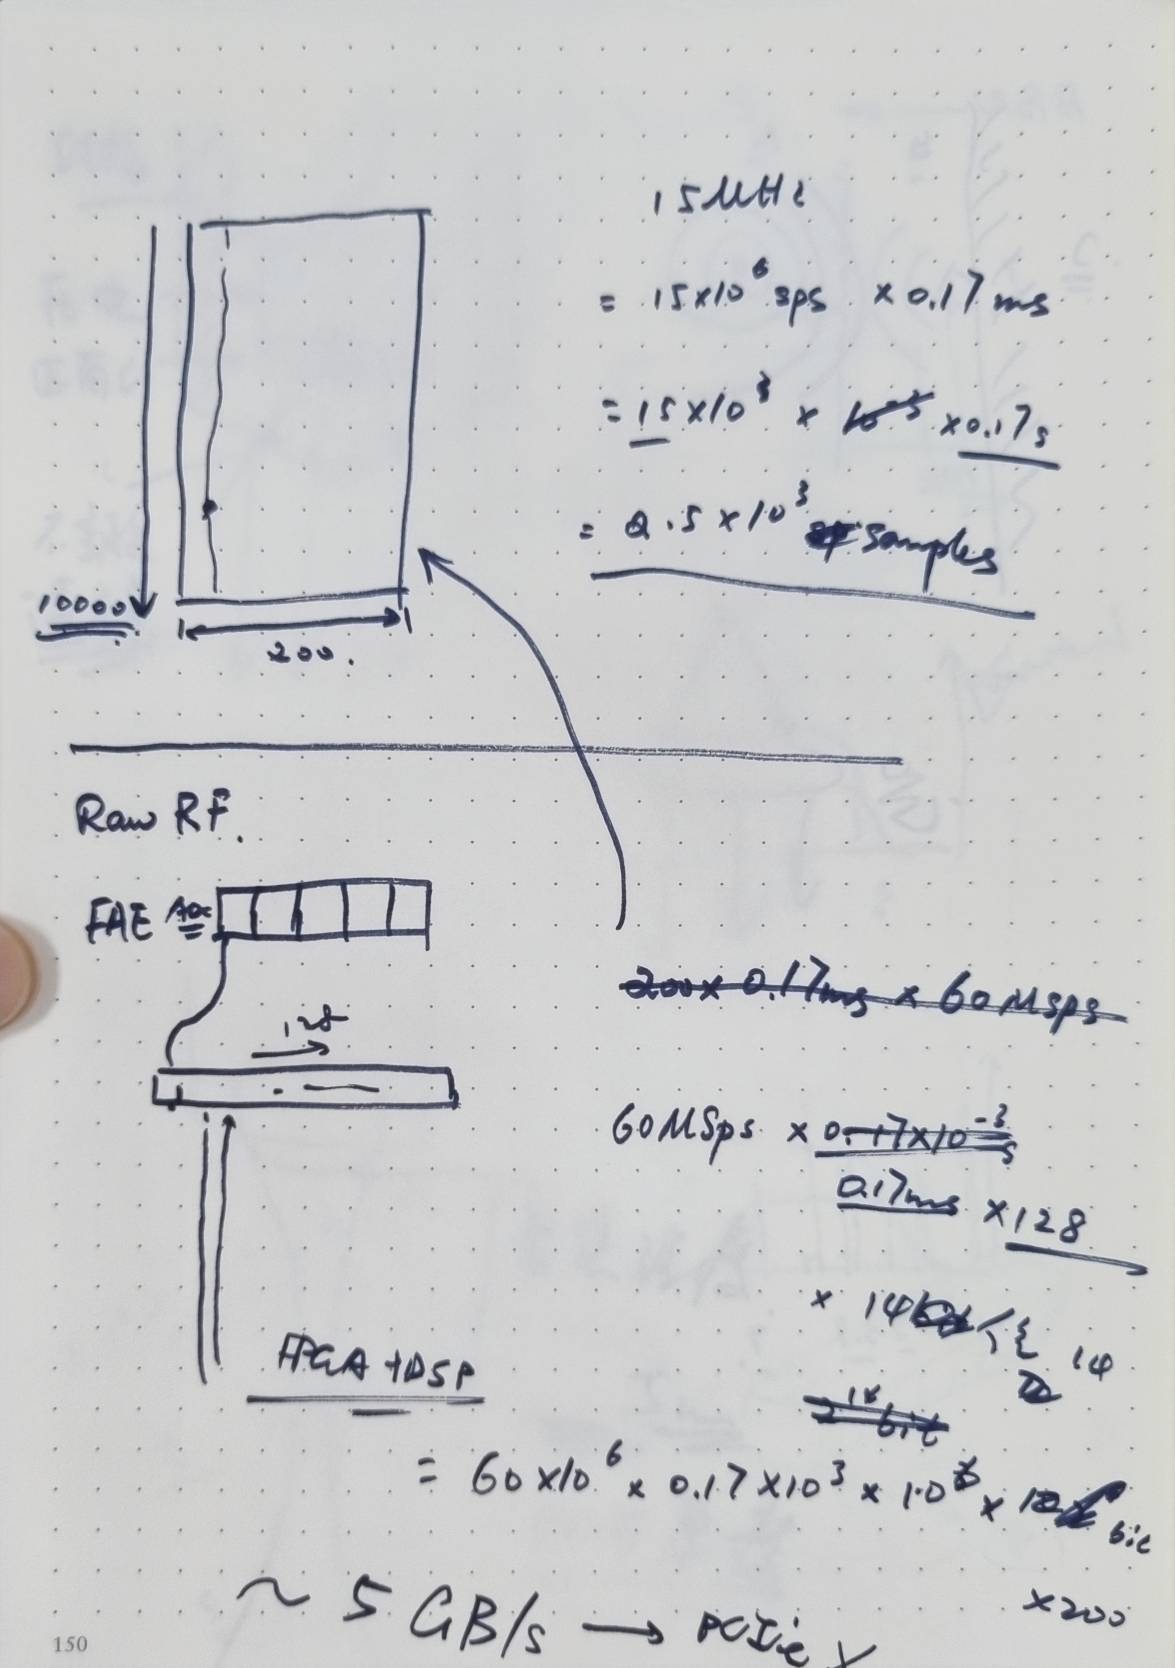 15MHz
= 15×10⁶ sps × 0.17 ms
= 15×10³ × 10⁻³ × 0.17s
= 2.5×10³ samples
10000
200.
Raw RF.
FAE ADC
128
200 × 0.17ms × 60 Msps
60MSps × 0.17×10⁻³ s
0.17ms × 128
× 14
14
bit
FPGA + DSP
= 60×10⁶ × 0.17×10³ × 10 ×
bit
×200
~ 5 GB/s → PCIe
150